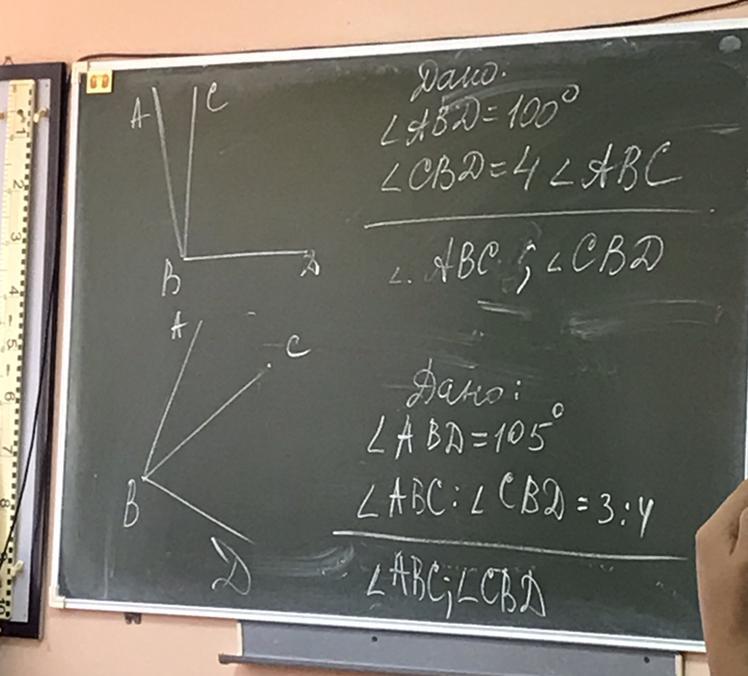 A C
B D
Дано:
∠ABD=100°
∠CBD=4∠ABC
∠ABC; ∠CBD
A C
B
D
Дано:
∠ABD=105°
∠ABC:∠CBD=3:4
∠ABC;∠CBD